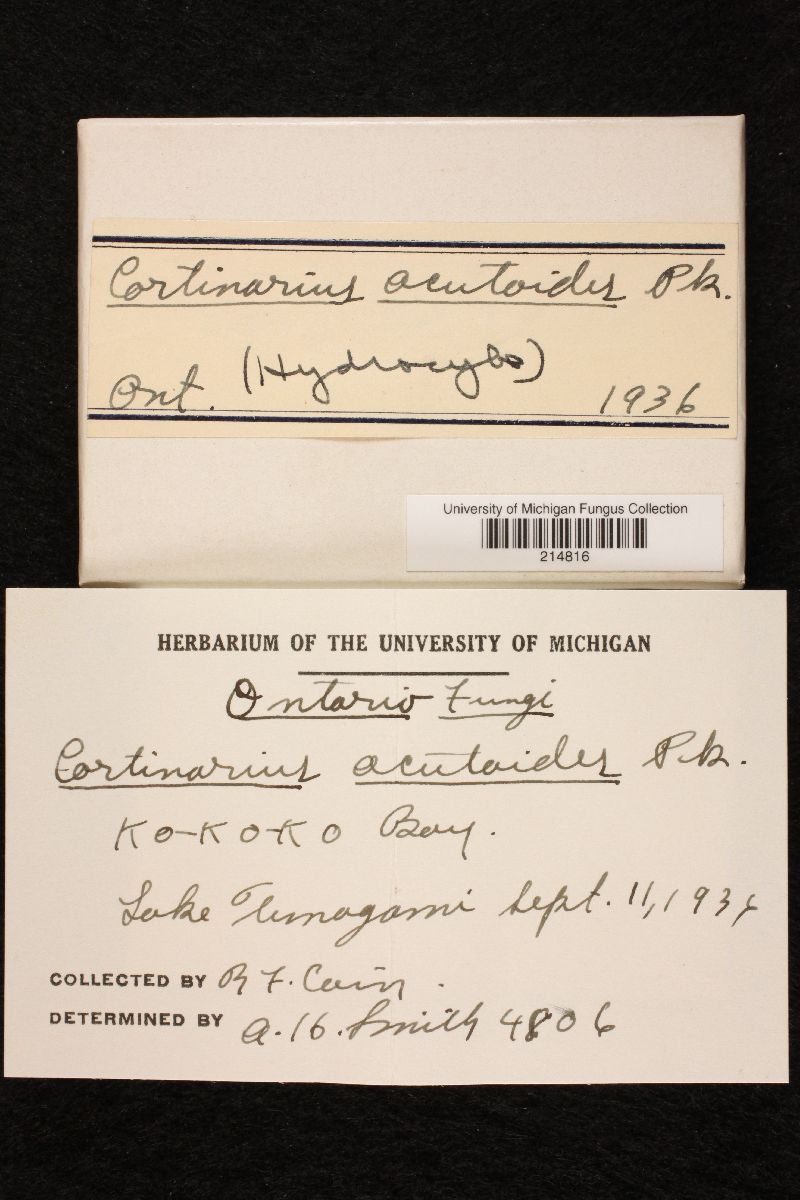 Cortinarius acutoides Pk.
(Hydrocybe)
Ont. 1936
University of Michigan Fungus Collection
214816
HERBARIUM OF THE UNIVERSITY OF MICHIGAN
Ontario Fungi
Cortinarius acutoides Pk.
Ko-Ko-Ko Bay.
Lake Timagami Sept. 11, 1936
COLLECTED BY R F. Cain.
DETERMINED BY A. H. Smith 4806